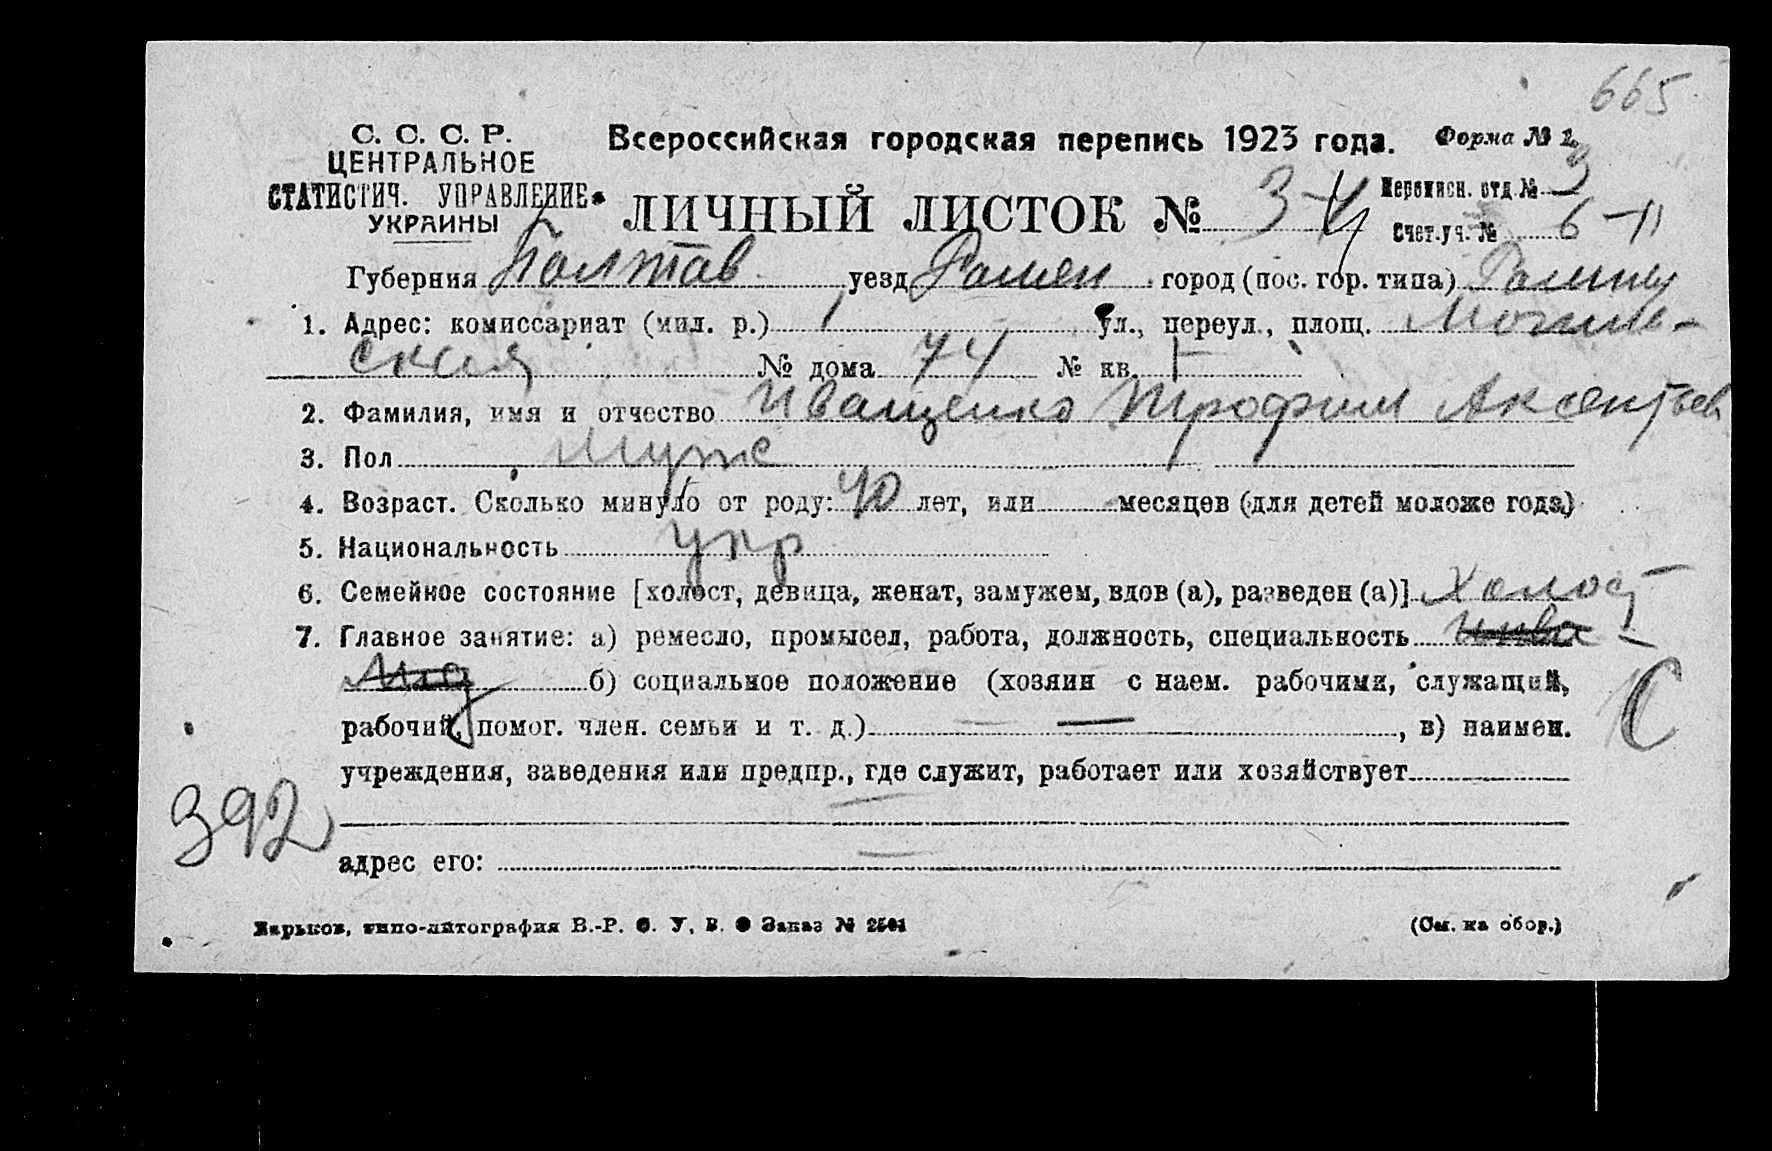 665
С. С. С. Р.
ЦЕНТРАЛЬНОЕ
СТАТИСТИЧ. УПРАВЛЕНИЕ
УКРАИНЫ
Всероссийская городская перепись 1923 года. Форма № 1.
ЛИЧНЫЙ ЛИСТОК № 3-4
Переписн. отд. № 3
Счет.уч. № 6-11
Губерния Полтав уезд Ромен город (пос. гор. типа) Ромны
1. Адрес: комиссариат (мил. р.) 1 ул., переул., площ. Могиль-
ская № дома 74 № кв. 1
2. Фамилия, имя и отчество Иващенко Трофим Аксентьев
3. Пол Муж
4. Возраст. Сколько минуло от роду: 40 лет, или месяцев (для детей моложе года)
5. Национальность укр
6. Семейное состояние [холост, девица, женат, замужем, вдов (а), разведен (а)] Холост
7. Главное занятие: а) ремесло, промысел, работа, должность, специальность инва
лид б) социальное положение (хозяин с наем. рабочими, служащий,
рабочий, помог. член. семьи и т. д.) — , в) наимен.
учреждения, заведения или предпр., где служит, работает или хозяйствует
392
адрес его: —
Харьков, типо-литография В.-Р. С. У. В. Заказ № 2501 (См. на обор.)